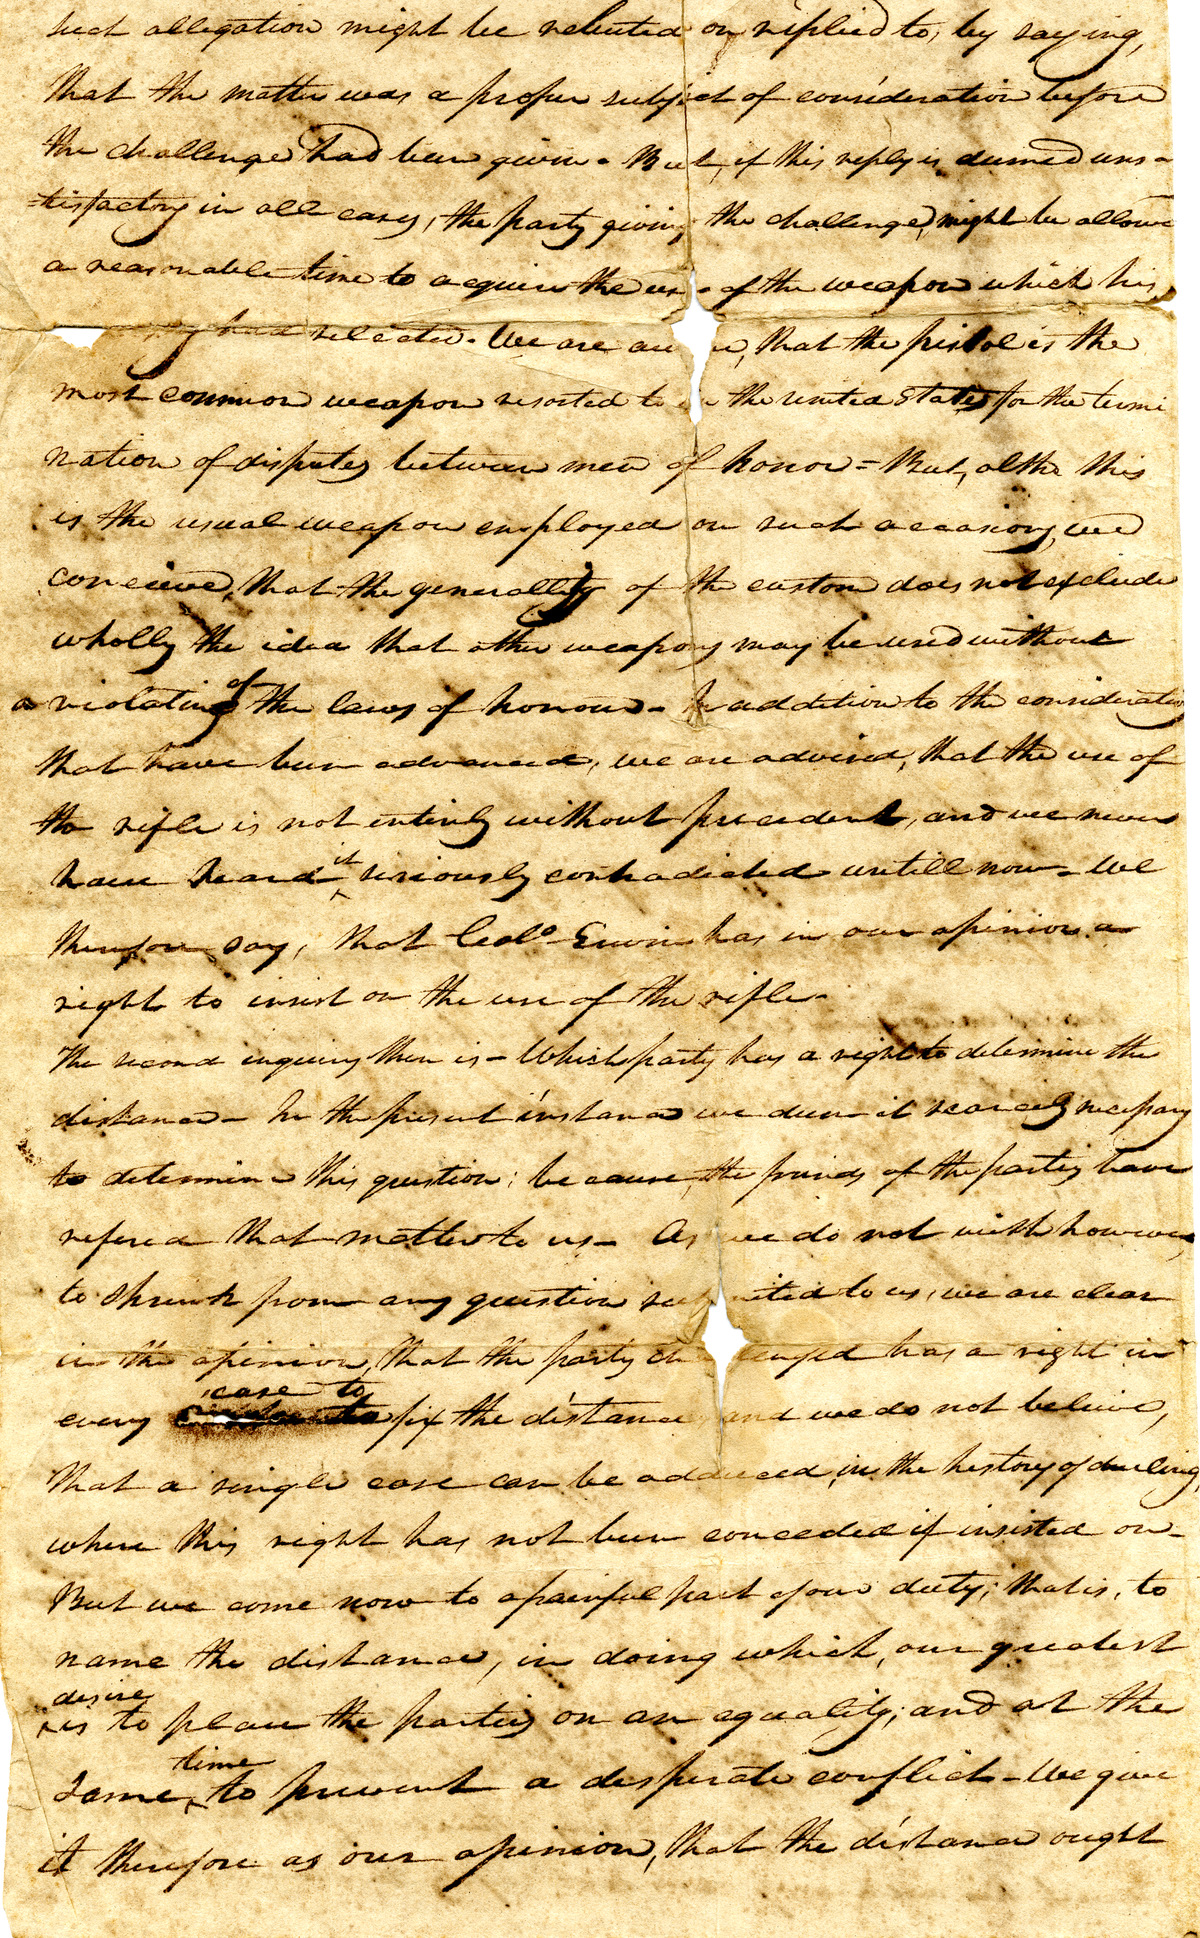 such allegation might be rebutted or replied to, by saying,
that the matter was a proper subject of consideration before
the challenge had been given - But, if this reply is deemed uns-
=tisfactory in all cases, the party giving the challenge, might be allowed
a reasonable time to acquire the use of the weapon which his
had selected. We are aware, that the pistol is the
most common weapon resorted to in the united States for the termi
nation of disputes between men of honor = But, altho this
is the usual weapon employed on such occasions, we
conceive, that the generallity of the custom does not exclude
wholly the idea that other weapons may be used without
a violating of the laws of honour - In addition to the considerations
that have been advanced, we are advised, that the use of
the rifle is not entirely without precedent, and we never
have heard it seriously contradicted untill now - We
therefore say, that Colo. Erwin has in our opinion a
right to insist on the use of the rifle -
The second inquiry then is - Which party has a right to determine the
distance - In the present instance we deem it scarcely necessary
to determine this question; because, the friends of the parties have
refered that matter to us - As we do not wish however,
to shrink from any question submitted to us, we are clear
in the opinion, that the party challenged has a right in
every case to fix the distance, and we do not believe,
that a single case can be adduced, in the history of dueling,
where this right has not been conceeded if insisted on -
But we come now to a painful part of our duty; that is, to
name the distance, in doing which, our greatest
desire is to place the parties on an equality; and at the
same time to prevent a desperate conflict - We give
it therefore as our opinion, that the distance ought